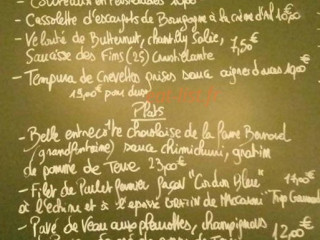 - Cassolette d'escargots de Bourgogne à la crème d'Ail 10,00€
- Velouté de Butternut, chantilly Salée,
Saucisse des Fins (25) Croustillante 7,50€
- Tempura de Crevettes grises sauce aigre douce 10,00€
19,00€ pour deux
Plats
- Belle entrecôte charolaise de la Ferme
(grandfontaine) sauce chimichurri, gratin
de pomme de Terre 23,00€
- Filet de Poulet Fermier façon "Cordon Bleu" 17,00€
à l'échine et à Macaroni "Trop Gourmand"
- Pavé de Veau aux pleurottes, champignons
12,00€